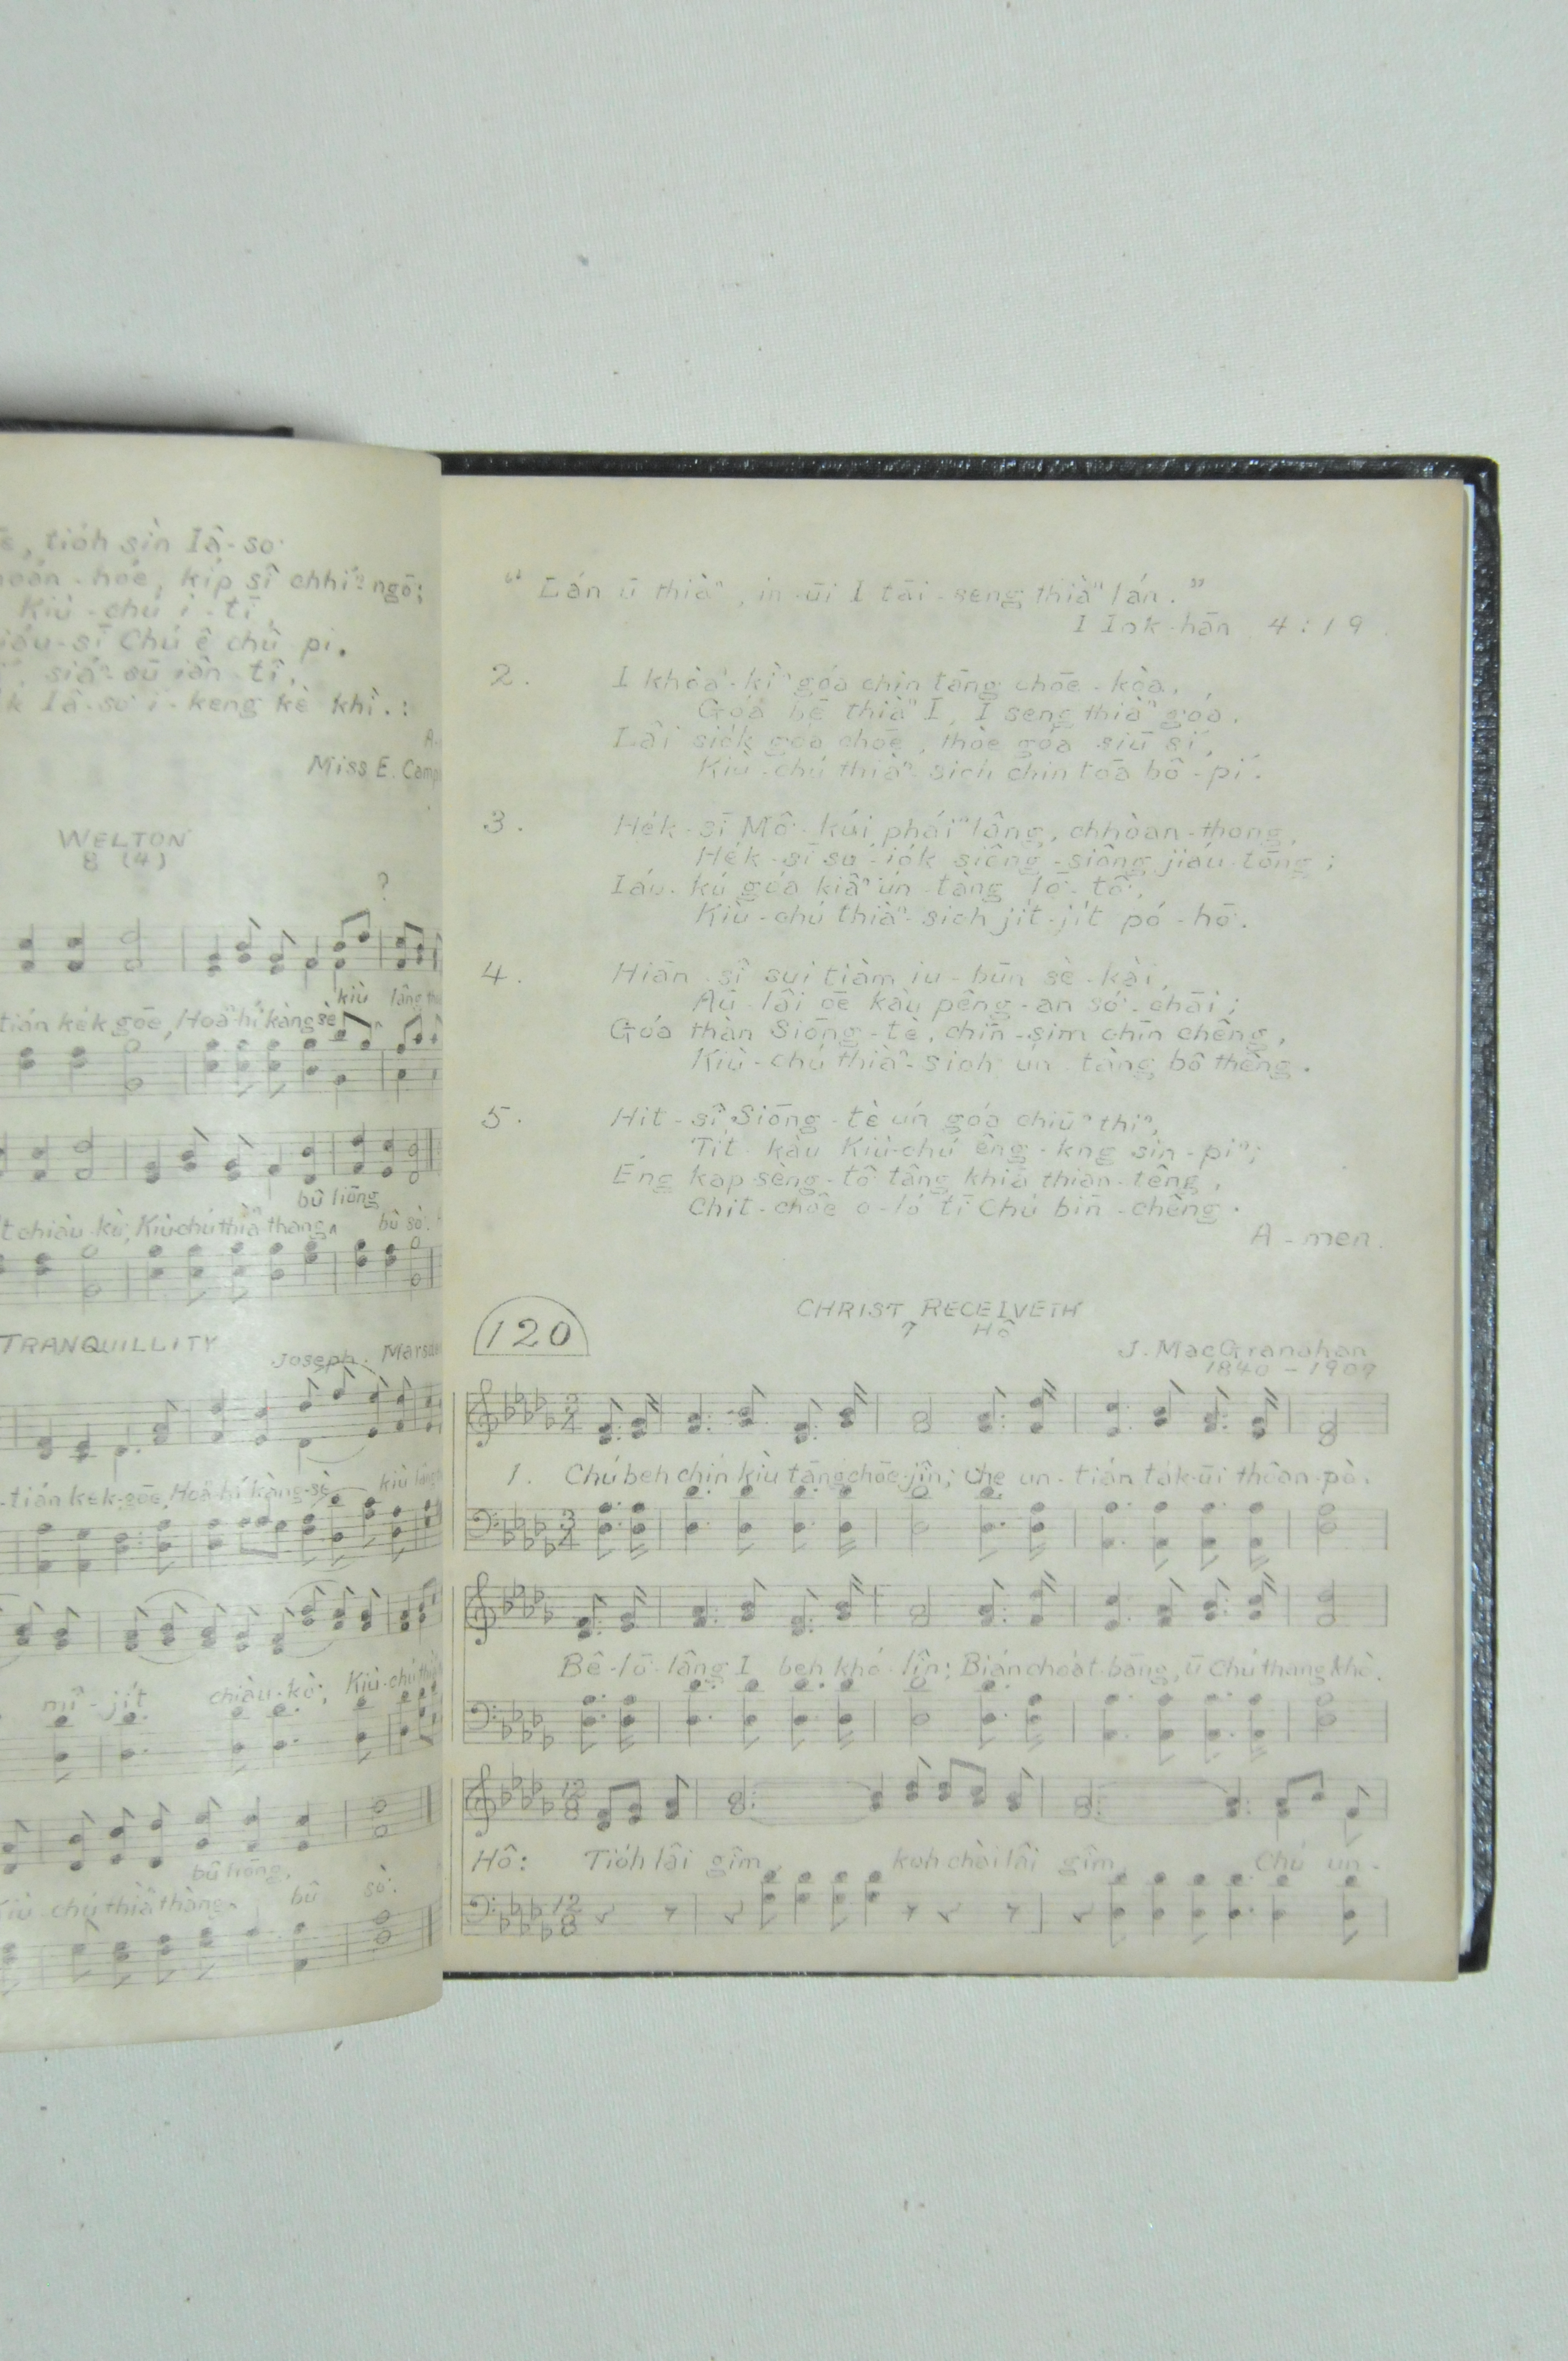 tio̍h sìn Iâ-so͘
hóe, ki̍p sî chhíⁿ ngō͘;
Kiù-chú ì-tī,
Chú ê chû pi.
siáⁿ-sū iân-tî,
Iâ-so͘ i-keng kè khì.:
Miss E. Camp
WELTON
8 (4)
?
kiù lâng
tián ke̍k gōe, Hoaⁿ-hí kàng sè
bû liōng
chiàu-kò͘, Kiù-chú thiàⁿ-thàng ^ bû sò͘.
TRANQUILLITY
Joseph. Marsd
-tián ke̍k-gōe, Hoaⁿ-hí kàng-sè kiù lâng
mî-ji̍t chiàu-kò͘; Kiù-chú
bû liōng,
Kiù-chú thiàⁿ thàng ^ bû sò͘.
“ Lán ū thiàⁿ, in-ūi I tāi-seng thiàⁿ lán. ”
I Iok-hān 4:19.
2. I khòaⁿ-kìⁿ góa chin tāng chōe-kòa,
Góa bē thiàⁿ I, I seng thiàⁿ góa.
Lâi sio̍k góa chōe, thòe góa siū sí,
Kiù-chú thiàⁿ-sioh chin tōa bô-pí.
3. He̍k-sī Mô͘-kúi pháiⁿ lâng, chhòan-thong,
He̍k-sī su-io̍k siông-siông jiáu-tōng;
Iáu-kú góa kiâⁿ ún-tàng lō͘-tô͘,
Kiù-chú thiàⁿ-sioh ji̍t-ji̍t pó-hō͘.
4. Hiān-sî sui tiàm iu-būn sè-kài,
Aū-lâi ōe kàu pêng-an só͘-chāi;
Góa thàn Siōng-tè, chīn-sim chīn chêng,
Kiù-chú thiàⁿ-sioh ún-tàng bô thêng.
5. Hit-sî Siōng-tè ún góa chiūⁿ thiⁿ,
Ti̍t-kàu Kiù-chú êng-kng sin-piⁿ;
Éng kap sèng-tô͘ tâng khiā thian-têng,
Chit-chōe o-ló tī Chú bīn-chêng.
A-men.
120
CHRIST RECEIVETH
7 Hô
J. MacGranahan
1840 - 1907
3/4
1. Chú beh chín kiù tāng chōe-jîn; Che un-tián ta̍k-ūi thôan-pò.
3/4
Bê-lō͘-lâng I beh khó-lîn; Bián choa̍t-bāng, ū Chú thang khò.
12/8
Hô: Tio̍h lâi gîm, koh chài lâi gîm, Chú un-
12/8